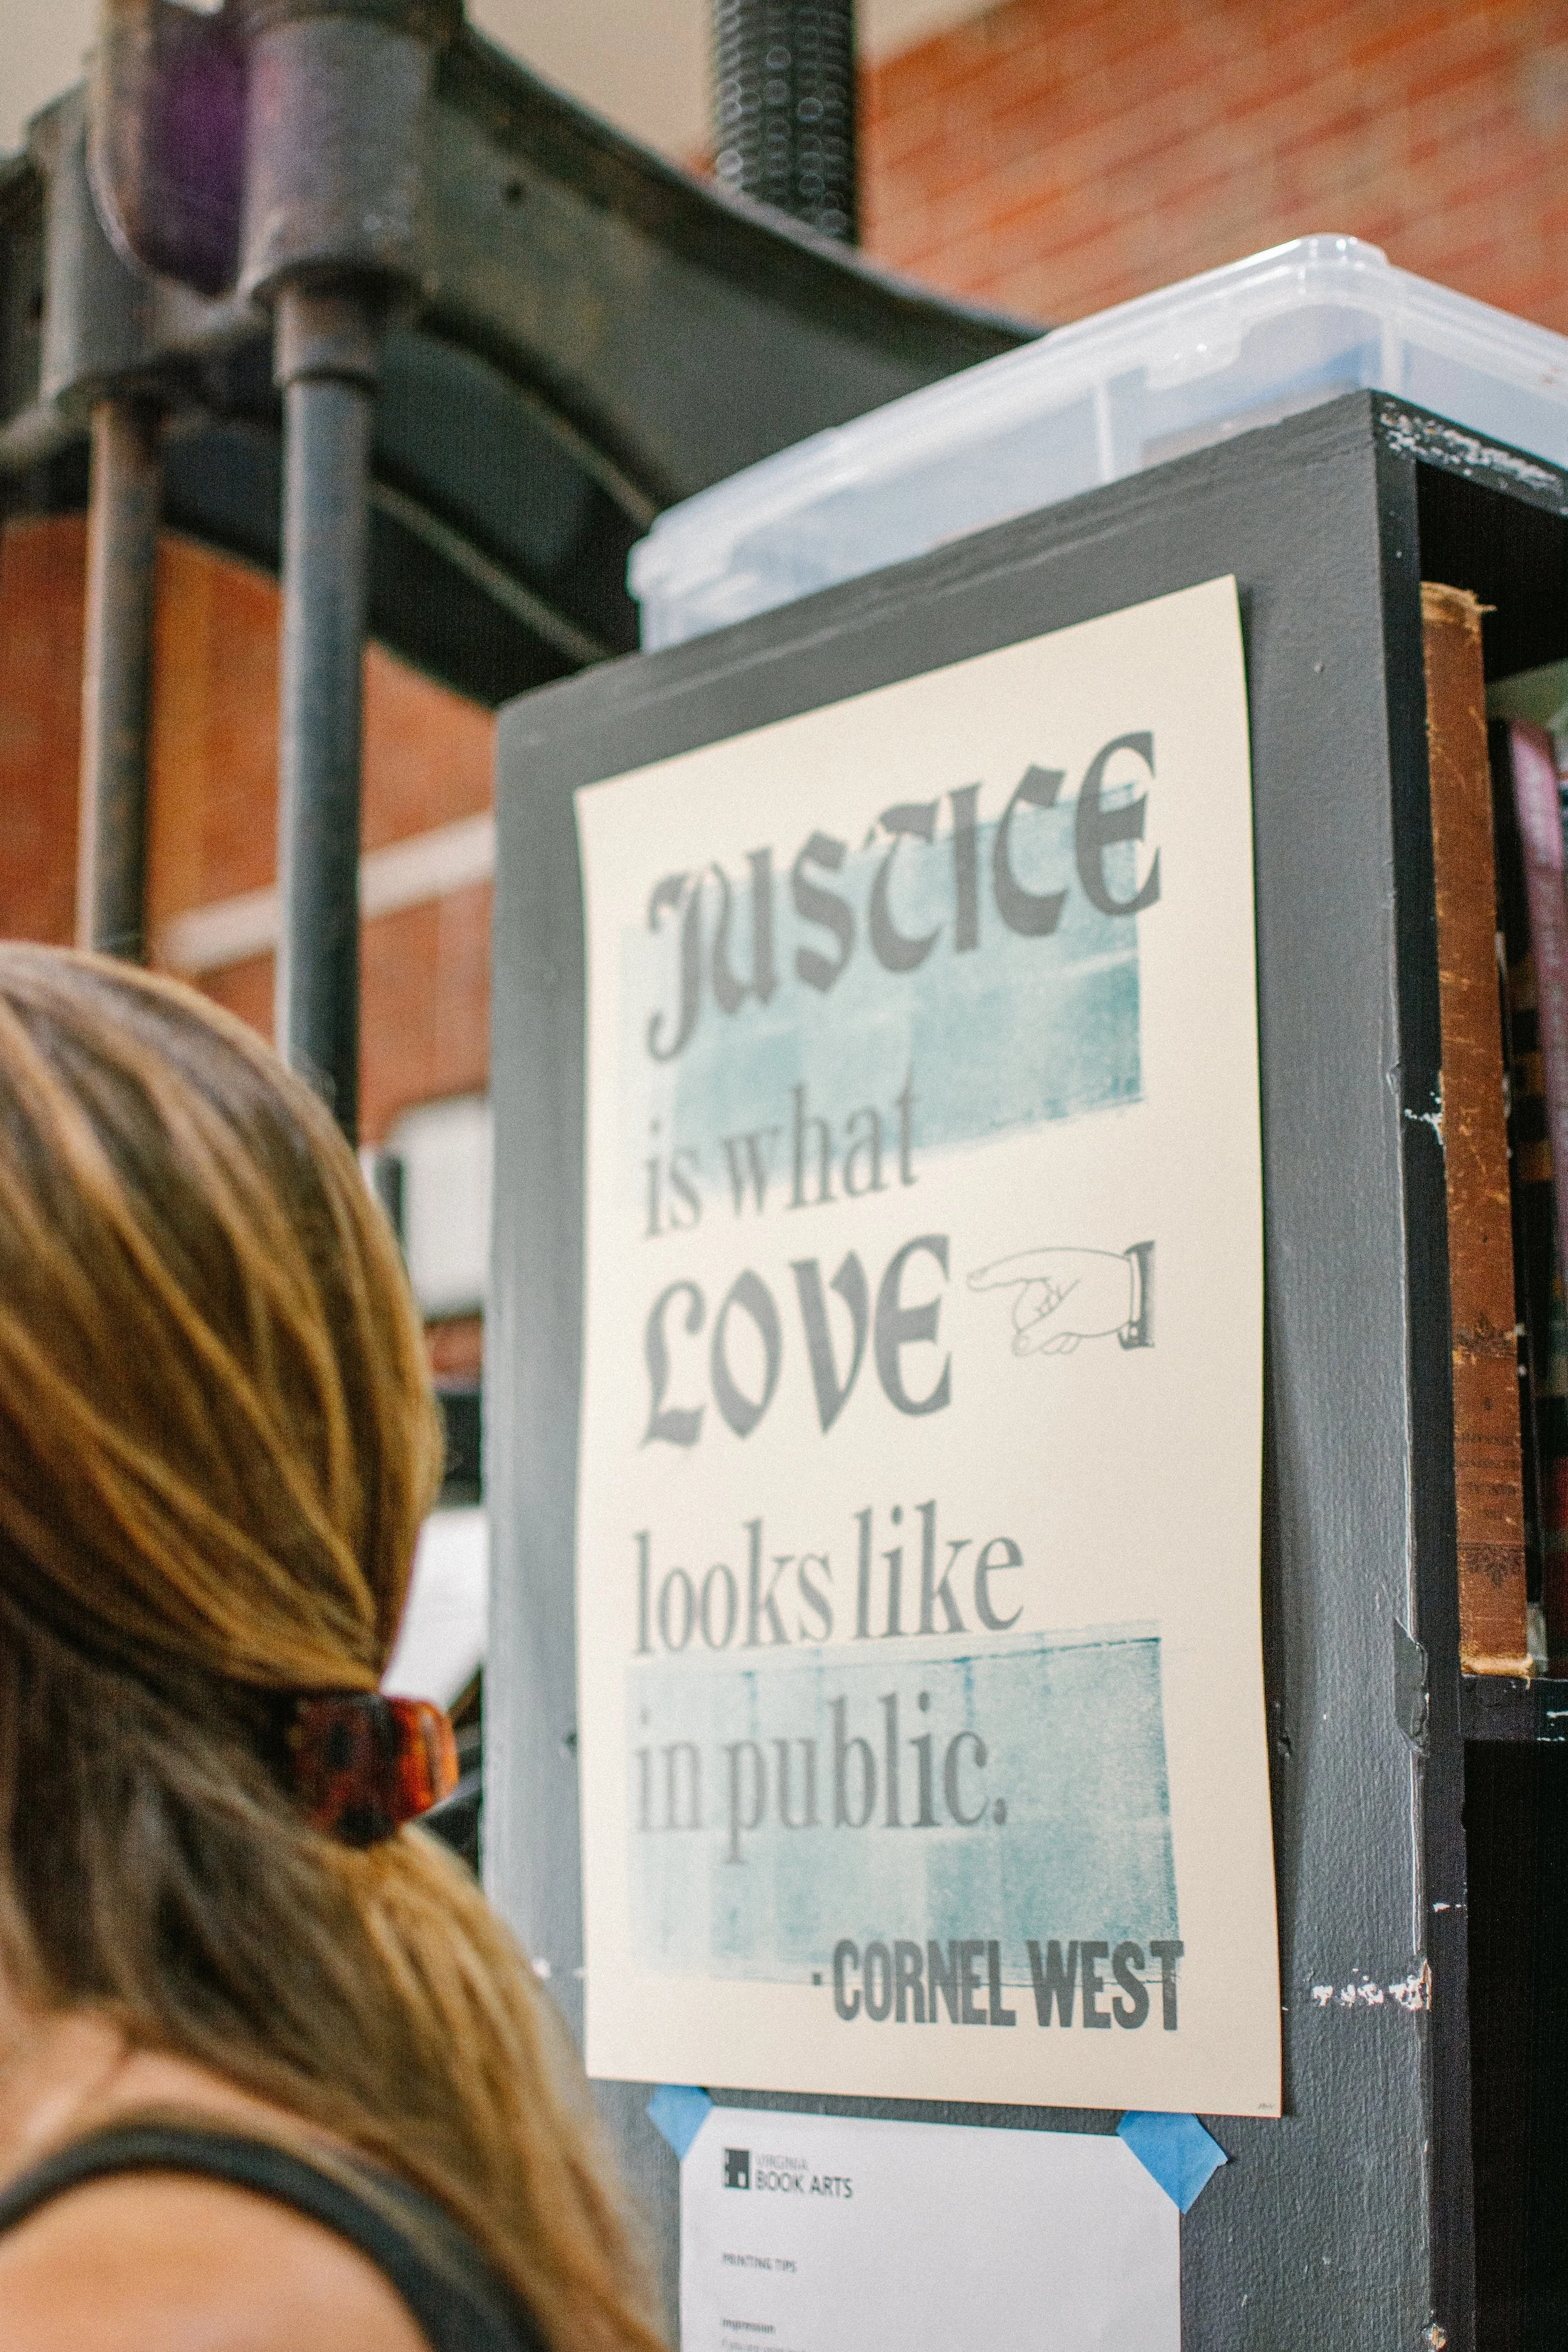 JUSTICE
is what
LOVE
looks like
in public.
·CORNEL WEST
VIRGINIA
BOOK ARTS
PRINTING TIPS
Impression